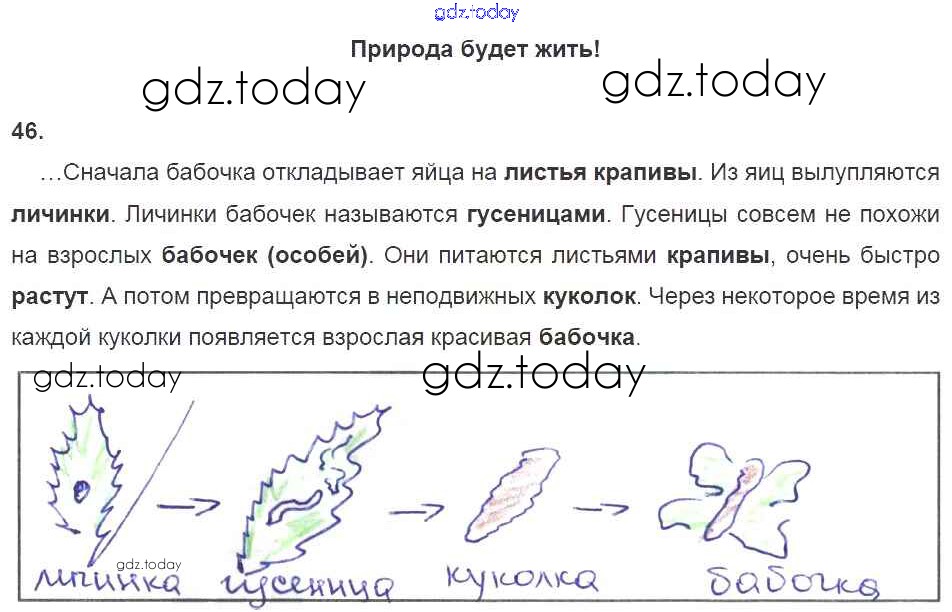 gdz.today
Природа будет жить!
gdz.today gdz.today
46.
…Сначала бабочка откладывает яйца на листья крапивы. Из яиц вылупляются
личинки. Личинки бабочек называются гусеницами. Гусеницы совсем не похожи
на взрослых бабочек (особей). Они питаются листьями крапивы, очень быстро
растут. А потом превращаются в неподвижных куколок. Через некоторое время из
каждой куколки появляется взрослая красивая бабочка.
gdz.today gdz.today
gdz.today
личинка гусеница куколка бабочка